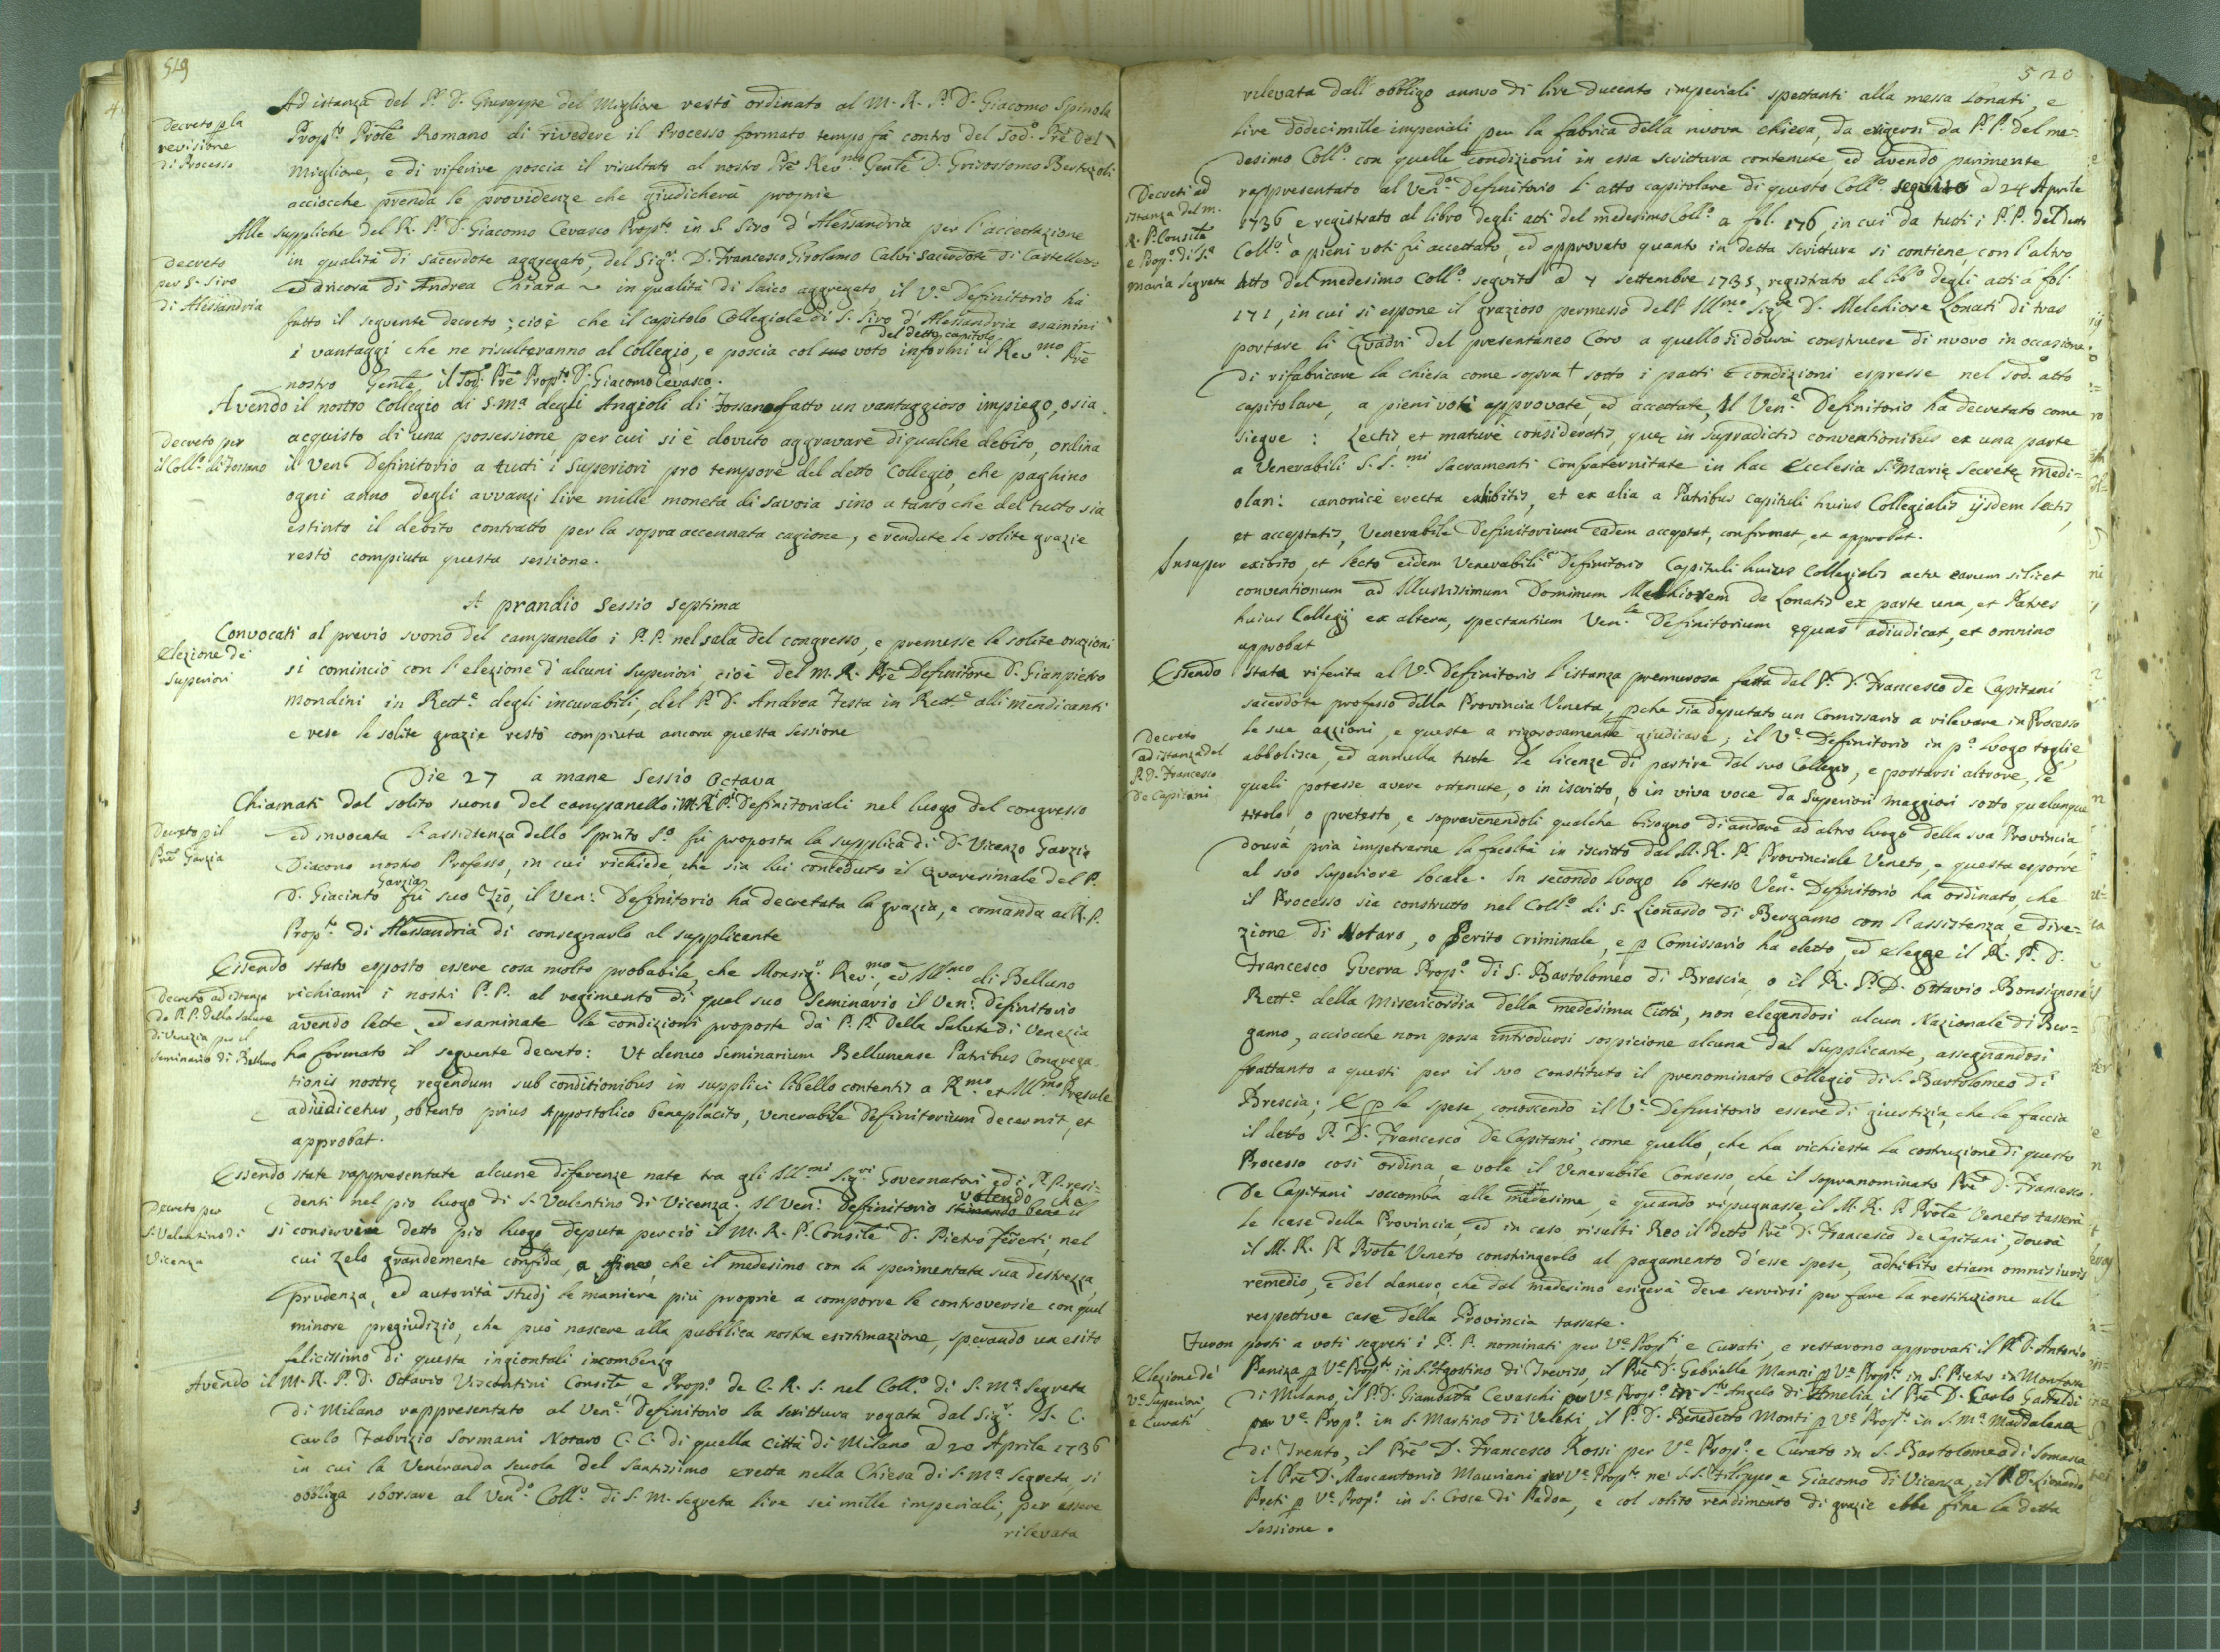 519
Ad istanza del P. D. Giuseppe del Migliore restò ordinato al M. R. P. D. Giacomo Spinola
Decreto p la
revisione
di Processo
Prop.to Prole Romano di rivedere il Processo formato tempo fà contro del sod.o Pre Del
Migliore, e di riferire poscia il risultato al nostro Pre Rev.mo Genle D. Grisostomo Bertazoli
acciocche prenda le providenze che giudicherà proprie
Alle suppliche del R. P. D. Giacomo Cevasco Prop.to in S. Siro d'Alessandria per l'accettazione
Decreto
per S. Siro
di Alessandria
in qualità di sacerdote aggregato, del Sig.r D. Francesco Girolamo Calvi sacerdote di Castellazzo
ed ancora di Andrea Chiara ~ in qualità di laico aggregato, il V.e Definitorio hà
fatto il seguente decreto; cioè che il capitolo Collegiale di S. Siro d'Alessandria esamini
del detto capitolo
i vantaggi che ne risulteranno al Collegio, e poscia col suo voto informi il Rev.mo Pre
nostro Genle, il sod.o Pre Prop.to D. Giacomo Cevasco.
Avendo il nostro Collegio di S. M.a degli Angioli di Fossano fatto un vantaggioso impiego, o sia
Decreto per
il Coll.o di Fossano
acquisto di una possessione, per cui si è dovuto aggravare di qualche debito, ordina
il Ven.e Definitorio a tutti i Superiori pro tempore del detto Collegio, che paghino
ogni anno degli avvanzi lire mille moneta di Savoia sino a tanto che del tutto sia
estinto il debito contratto per la sopraaccennata cagione, e rendute le solite grazie
restò compiuta questa sessione.
A prandio Sessio Septima
Convocati al previo suono del campanello i P. P. nel sala del congresso, e premesse le solite orazioni
Elezione de
Superiori
si cominciò con l'elezione d'alcuni Superiori, cioè del M. R. Pre Definitore D. Gianpietro
Mondini in Rett.e degli incurabili, del P. D. Andrea Testa in Rett.e alli Mendicanti
e rese le solite grazie restò compiuta ancora questa sessione
Die 27 a mane Sessio Octava
Chiamati dal solito suono del campanello i M. R. P. Definitoriali nel luogo del congresso
Decreto p il
Pre Garzia
ed invocata l'assistenza dello Spirito S.o fù proposta la supplica di D. Vicenzo Garzia
Diacono nostro Professo, in cui richiede, che sia lui conceduto il Quaresimale del P.
Garzia
D. Giacinto fù suo Zio, il Ven: Definitorio ha decretata la grazia, e comanda al R. P.
Prop.to di Alessandria di consegnarlo al supplicante
Essendo stato esposto essere cosa molto probabile, che Monsig.r Rev.mo, ed Ill.mo di Belluno
Decreto ad istanza
De P. P. della Salute
di Venezia per il
Seminario di Belluno
richiami i nostri P. P. al regimento di quel suo Seminario il Ven: Definitorio
avendo lette, ed esaminate le condizioni proposte da P. P. Della Salute di Venezia
ha formato il seguente decreto: Ut denuo Seminarium Bellunense Patribus Congrega-
tionis nostrę regendum sub conditionibus in supplici libello contentis a R.mo et Ill.mo Presule
adiudicetur, obtento prius Appostolico beneplacito, venerabile Definitorium decernit, et
approbat.
Essendo state rappresentate alcune diferenze nate tra gli Ill.mi Sig.ri Governatori, ed i P. P. resi-
Decreto per
S. Valentino di
Vicenza
volendo che
denti nel pio luogo di S. Valentino di Vicenza, Il Ven: Definitorio stimando bene il
si conservi detto pio luogo deputa perciò il M. R. P. Consile D. Pietro Ferreri, nel
cui zelo grandemente confida, a fine, che il medesimo con la sperimentata sua destrezza,
prudenza, ed autorità studj le maniere più proprie a comporre le controversie con quel
minore pregiudizio, che può nascere alla pubblica nostra esistimazione, sperando un esito
felicissimo di questa ingiontoli incombenza
Avendo il M. R. P. D. Ottavio Viscontini Consile e Prop.o de C. R. S. nel Coll.o di S. M.a Segreta
di Milano rappresentato al Ven.e Definitorio la scrittura rogata dal Sig.r
Carlo Fabrizio Sormani Notaro C. C. di quella Città di Milano a 20 Aprile 1736
in cui la Veneranda scuola del Santissimo eretta nella Chiesa di S. M.a Segreta, si
obbliga sborsare al Ven.do Coll.o di S. M. Segreta lire sei mille imperiali, per essere
rilevata
520
rilevata dall'obbligo annuo di lire ducento imperiali spettanti alla messa Lonati, e
lire dodecimille imperiali per la fabrica della nuova chiesa, da exigersi da P. P. del me=
desimo Coll.o con quelle condizioni in essa scrittura contenute, ed avendo parimente
Decreti ad
istanza del M.
R. P. Consile
e Prop.o di S.a
Maria Segreta
rappresentato al Ven.do Definitorio l'atto capitolare di questo Coll.o seguito a 24 Aprile
1736, e registrato al libro degli atti del medesimo Coll.o a fol. 176, in cui da tutti i P. P. del detto
Coll.o a pieni voti fù accettato, ed approvato quanto in detta scrittura si contiene, con l'altro
Atto del medesimo Coll.o seguito a 7 settembre 1735, registrato al lib.o degli atti á fol.
171, in cui si espone il grazioso permesso dell'Ill.mo Sig.re D. Melchiore Lonati di tras
portare li Quadri del presentaneo Coro a quello si dovrà construere di nuovo in occasione
di rifabricare la chiesa come sopra † sotto i patti e condizioni espresse nel sod.o atto
capitolare, a pieni voti approvate, ed accettate, Il Ven.e Definitorio ha decretato come
siegue: Lectis et maturè consideratis, quę in supradictis conventionibus ex una parte
a Venerabili S. S.mi Sacramenti Confraternitate in hac Ecclesia S. Marię Secretę Medi=
olan: canonicè erecta exhibitis, et ex alia a Patribus Capituli huius Collegialis ijsdem lectis,
et acceptatis, Venerabile Definitorium eadem acceptat, confirmat, et approbat.
Insuper exibito, et lecto eidem Venerabili Definitorio Capituli huius Collegialis actu earum silicet
conventionum ad Illustrissimum Dominum Melchiorem de Lonatis ex parte una, et Patres
huius Collegij ex altera, spectantium Ven.le Definitorium ęquas adiudicat, et omnino
approbat
Essendo stata riferita al V.e Definitorio l'istanza premurosa fatta dal P. D. Francesco de Capitani
sacerdote professo della Provincia Veneta, pche sia deputato un Comissario a rilevare in Processo
Decreto
ad istanza del
P. D. Francesco
De Capitani
le sue azzioni, e queste a rigorosamente giudicare; il V.e Definitorio in p.o luogo toglie,
abbolisce, ed annulla tutte le licenze di partire dal suo Collegio, e portarsi altrove, le
quali potesse avere ottenute, o in iscritto, o in viva voce da Superiori Maggiori sotto qualunque
titolo, o pretesto, e sopravenendoli qualche bisogno di andare ad altro luogo della sua Provincia
dovrà pria impetrarne la facoltà in iscritto dal M. R. P. Provinciale Veneto, e questa esporre
al suo Superiore locale. In secondo luogo lo stesso Ven.e Definitorio ha ordinato, che
il Processo sia construtto nel Coll.o di S. Lionardo di Bergamo con l'assistenza, e dire-
zione di Notaro, o Perito criminale, e p Comissario ha eletto, ed elegge il R. P. D.
Francesco Guerra Prop.o di S. Bartolomeo di Brescia, o il R. P. D. Ottavio Bonsignore
Rett.e della Misericordia della medesima Città, non elegendosi alcun Nazionale di Ber=
gamo, acciocche non possa introdursi sospicione alcuna dal supplicante, assegnandosi
frattanto a questi per il suo constituto il prenominato Collegio di S. Bartolomeo di
Brescia; E p le spese, conoscendo il V.e Definitorio essere di giustizia, che le faccia
il detto P. D. Francesco De Capitani, come quello, che ha richiesta la costruzione di questo
Processo così ordina, e vole il Venerabile Consesso, che il sopranominato Pre D. Francesco
De Capitani soccomba alle medesime, e quando ripugnasse, il M. R. P. Prole Veneto tasserà
le case della Provincia, ed in caso risulti Reo il detto Pre D. Francesco de Capitani, dovrà
il M. R. P. Prole Veneto constringerlo al pagamento d'esse spese, adhibito etiam omnis iuris
remedio, e del danero, che dal medesimo esigerà deve servirsi per fare la restituzione alle
respettive case della Provincia tassate.
Furon posti a voti segreti i P. P. nominati per V.e Prop.ti e Curati, e restarono approvati il P. D. Antonio
Elezione de
V.e Superiori,
e Curati
Paniza p V.e Prop.to in S. Agostino di Treviso, il Pre D. Gabrielle Manni p V.e Prop.to in S. Pietro in Monforte
di Milano, il P. D. Giambatta Cevaschi p V.e Prop.o in S. Angelo di Amelia, il Pre D. Carlo Gastaldi
per V.e Prop.o in S. Martino di Veletri, il P. D. Benedetto Monti p V.e Prop.to in S. M.a Maddalena
di Trento, il Pre D. Francesco Rossi per V.e Prop.o e Curato in S. Bartolomeo di Somasca
il Pre D. Marcantonio Mauriani per V.e Prop.to ne S.S. Filippo e Giacomo di Vicenza, il P. D. Lionardo
Preti p V.e Prop.o in S. Croce di Padoa, e col solito rendimento di grazie ebbe fine la detta
sessione.